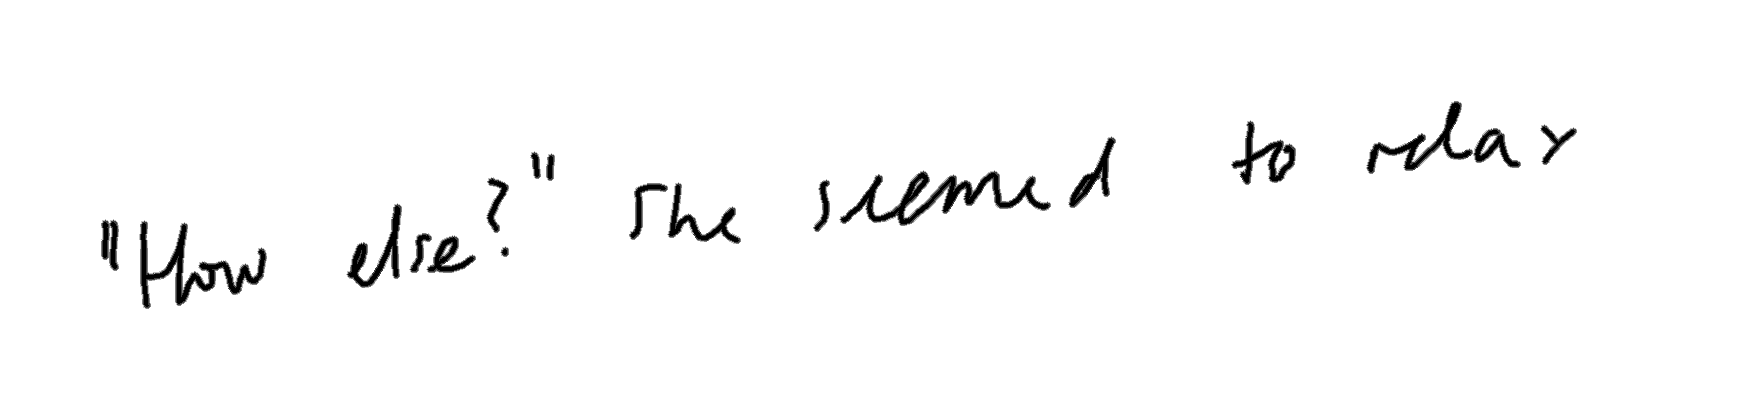 "How else?" She seemed to relax